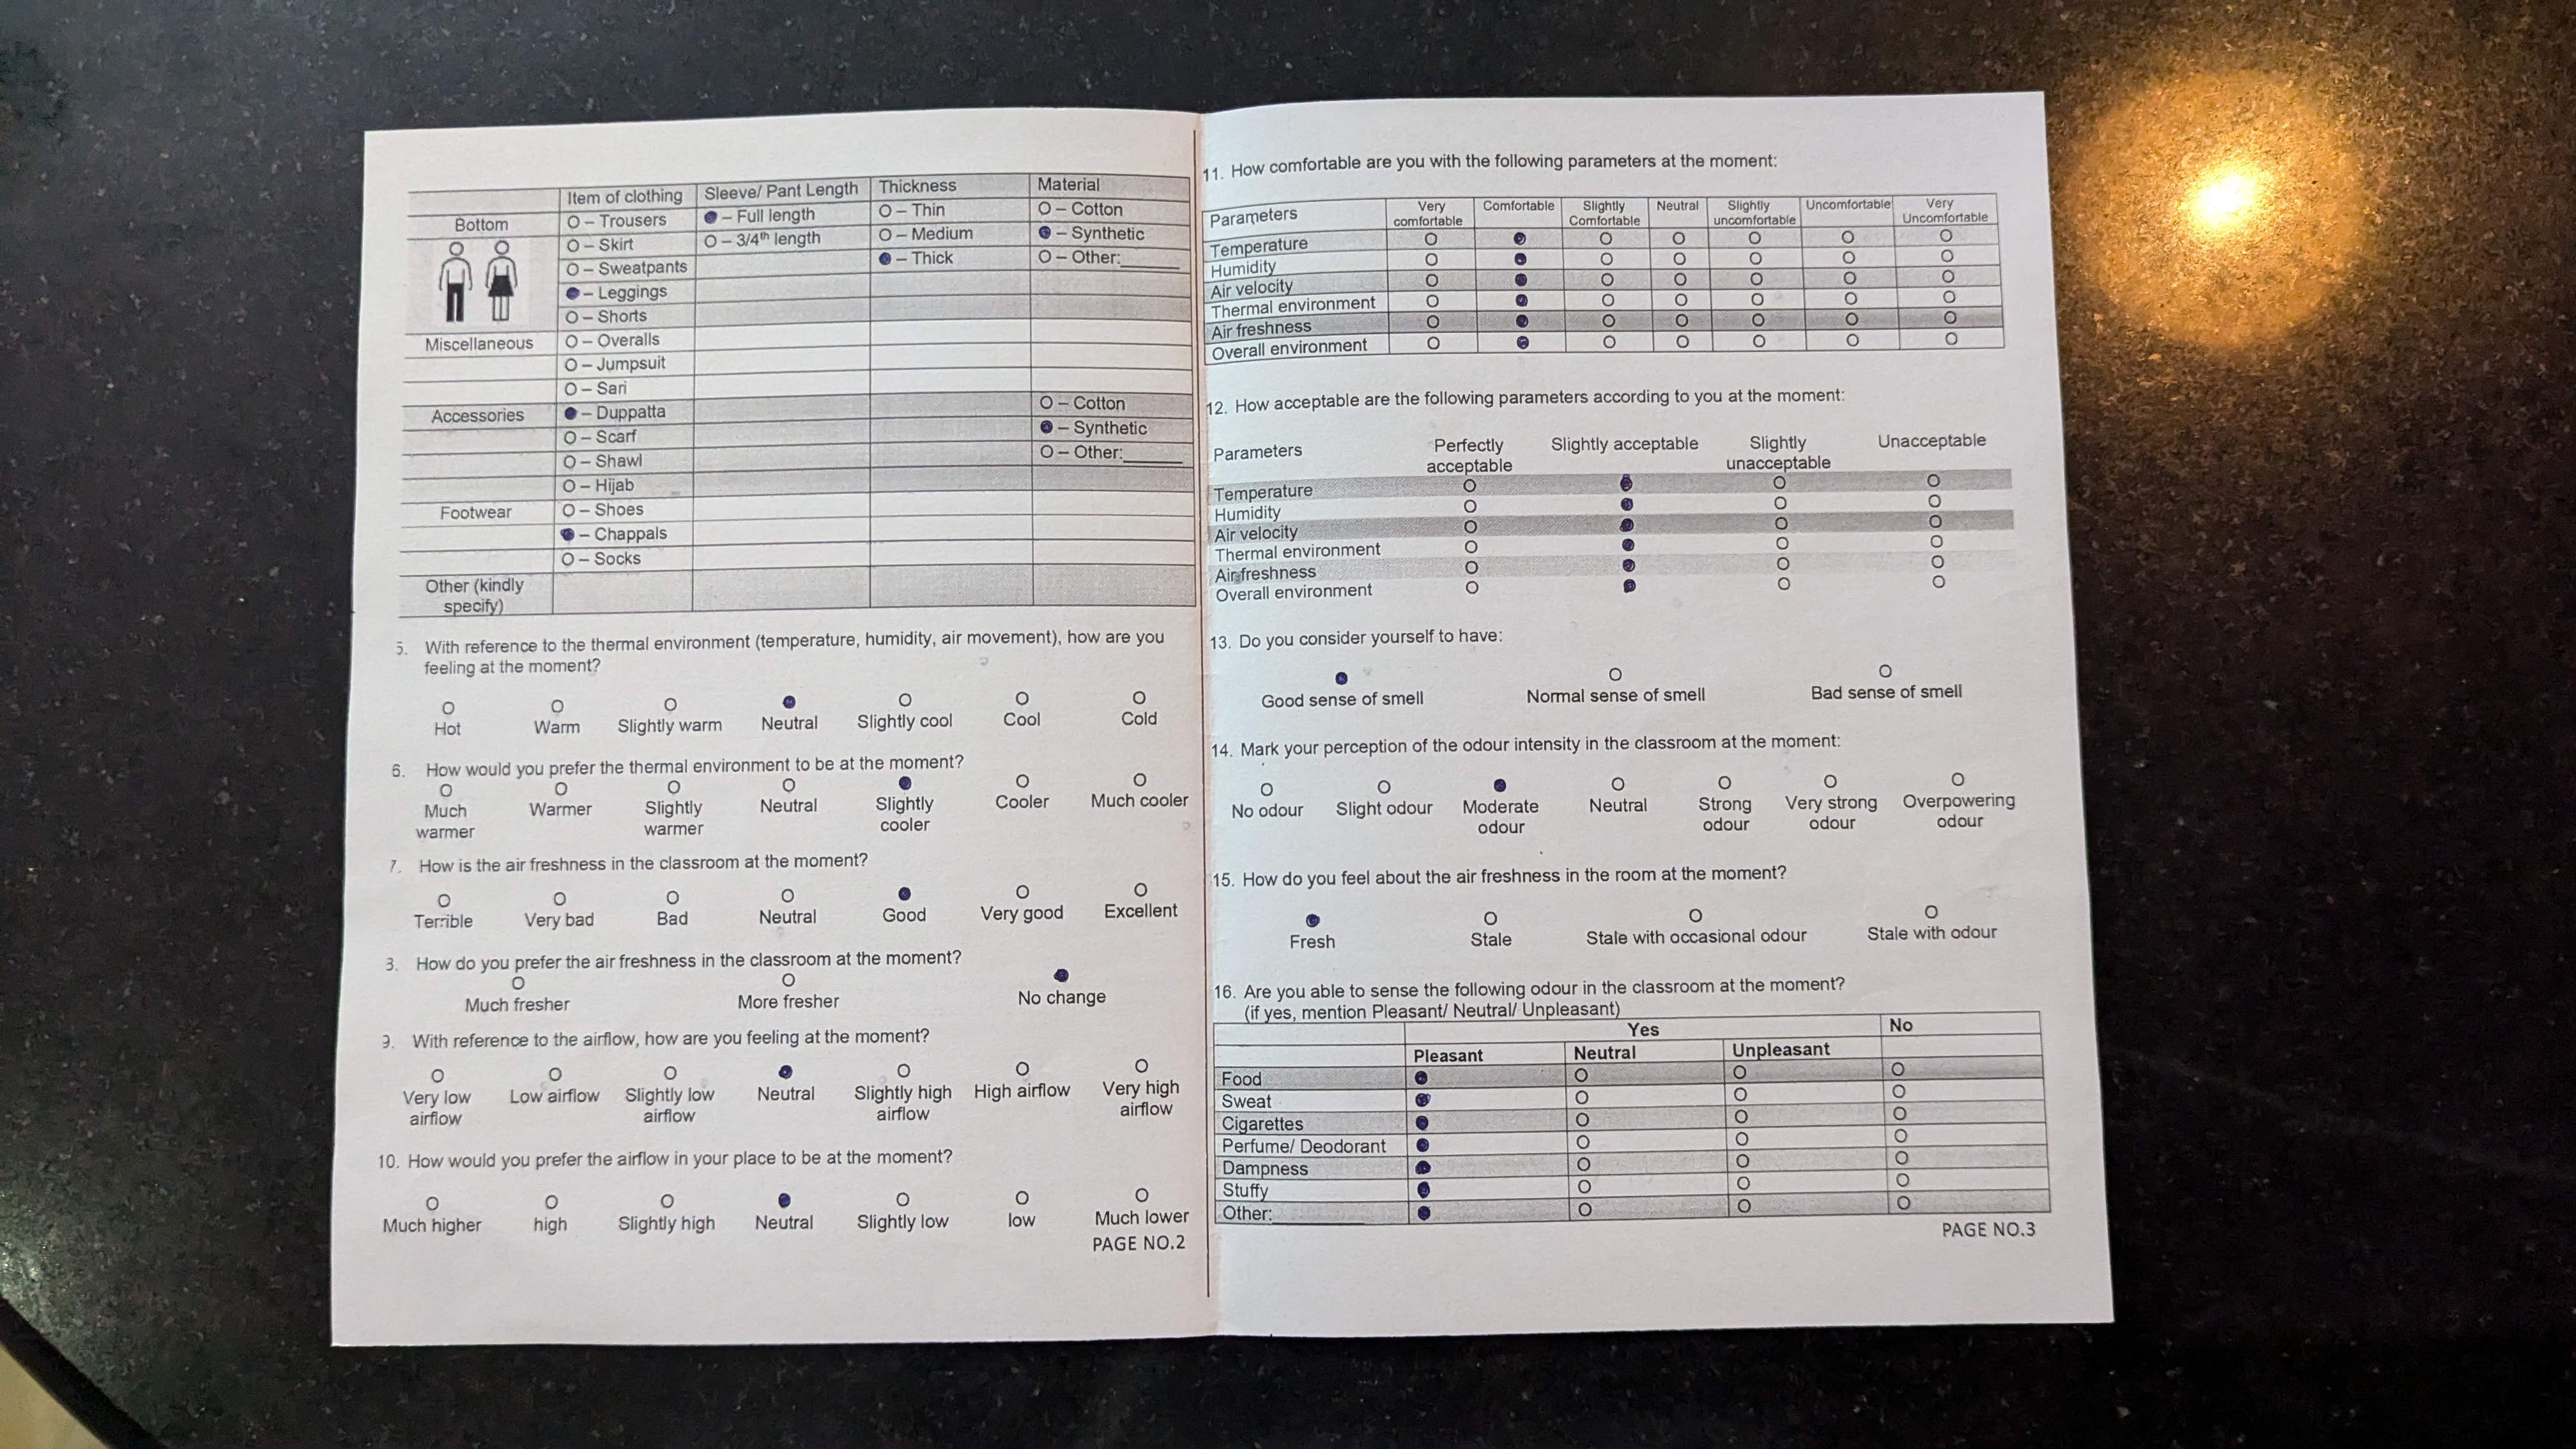 Item of clothing Sleeve/ Pant Length Thickness Material
Bottom O – Trousers ● – Full length O – Thin O – Cotton
O – Skirt O – 3/4th length O – Medium ● – Synthetic
O – Sweatpants ● – Thick O – Other:______
● – Leggings
O – Shorts
Miscellaneous O – Overalls
O – Jumpsuit
O – Sari
Accessories ● – Duppatta O – Cotton
O – Scarf ● – Synthetic
O – Shawl O – Other:______
O – Hijab
Footwear O – Shoes
● – Chappals
O – Socks
Other (kindly
specify)
5. With reference to the thermal environment (temperature, humidity, air movement), how are you
feeling at the moment?
O O O ● O O O
Hot Warm Slightly warm Neutral Slightly cool Cool Cold
6. How would you prefer the thermal environment to be at the moment?
O O O O ● O O
Much Warmer Slightly Neutral Slightly Cooler Much cooler
warmer warmer cooler
7. How is the air freshness in the classroom at the moment?
O O O O ● O O
Terrible Very bad Bad Neutral Good Very good Excellent
How do you prefer the air freshness in the classroom at the moment?
O O ●
Much fresher More fresher No change
With reference to the airflow, how are you feeling at the moment?
O O O ● O O O
Very low Low airflow Slightly low Neutral Slightly high High airflow Very high
airflow airflow airflow airflow
10. How would you prefer the airflow in your place to be at the moment?
O O O ● O O O
Much higher high Slightly high Neutral Slightly low low Much lower
PAGE NO.2
11. How comfortable are you with the following parameters at the moment:
Parameters Very Comfortable Slightly Neutral Slightly Uncomfortable Very
comfortable Comfortable uncomfortable Uncomfortable
Temperature O ● O O O O O
Humidity O ● O O O O O
Air velocity O ● O O O O O
Thermal environment O ● O O O O O
Air freshness O ● O O O O O
Overall environment O ● O O O O O
12. How acceptable are the following parameters according to you at the moment:
Parameters Perfectly Slightly acceptable Slightly Unacceptable
acceptable unacceptable
Temperature O ● O O
Humidity O ● O O
Air velocity O ● O O
Thermal environment O ● O O
Air freshness O ● O O
Overall environment O ● O O
13. Do you consider yourself to have:
● O O
Good sense of smell Normal sense of smell Bad sense of smell
14. Mark your perception of the odour intensity in the classroom at the moment:
O O ● O O O O
No odour Slight odour Moderate Neutral Strong Very strong Overpowering
odour odour odour odour
15. How do you feel about the air freshness in the room at the moment?
● O O O
Fresh Stale Stale with occasional odour Stale with odour
16. Are you able to sense the following odour in the classroom at the moment?
(if yes, mention Pleasant/ Neutral/ Unpleasant)
Yes No
Pleasant Neutral Unpleasant
Food ● O O O
Sweat ● O O O
Cigarettes ● O O O
Perfume/ Deodorant ● O O O
Dampness ● O O O
Stuffy ● O O O
Other:__________ ● O O O
PAGE NO.3